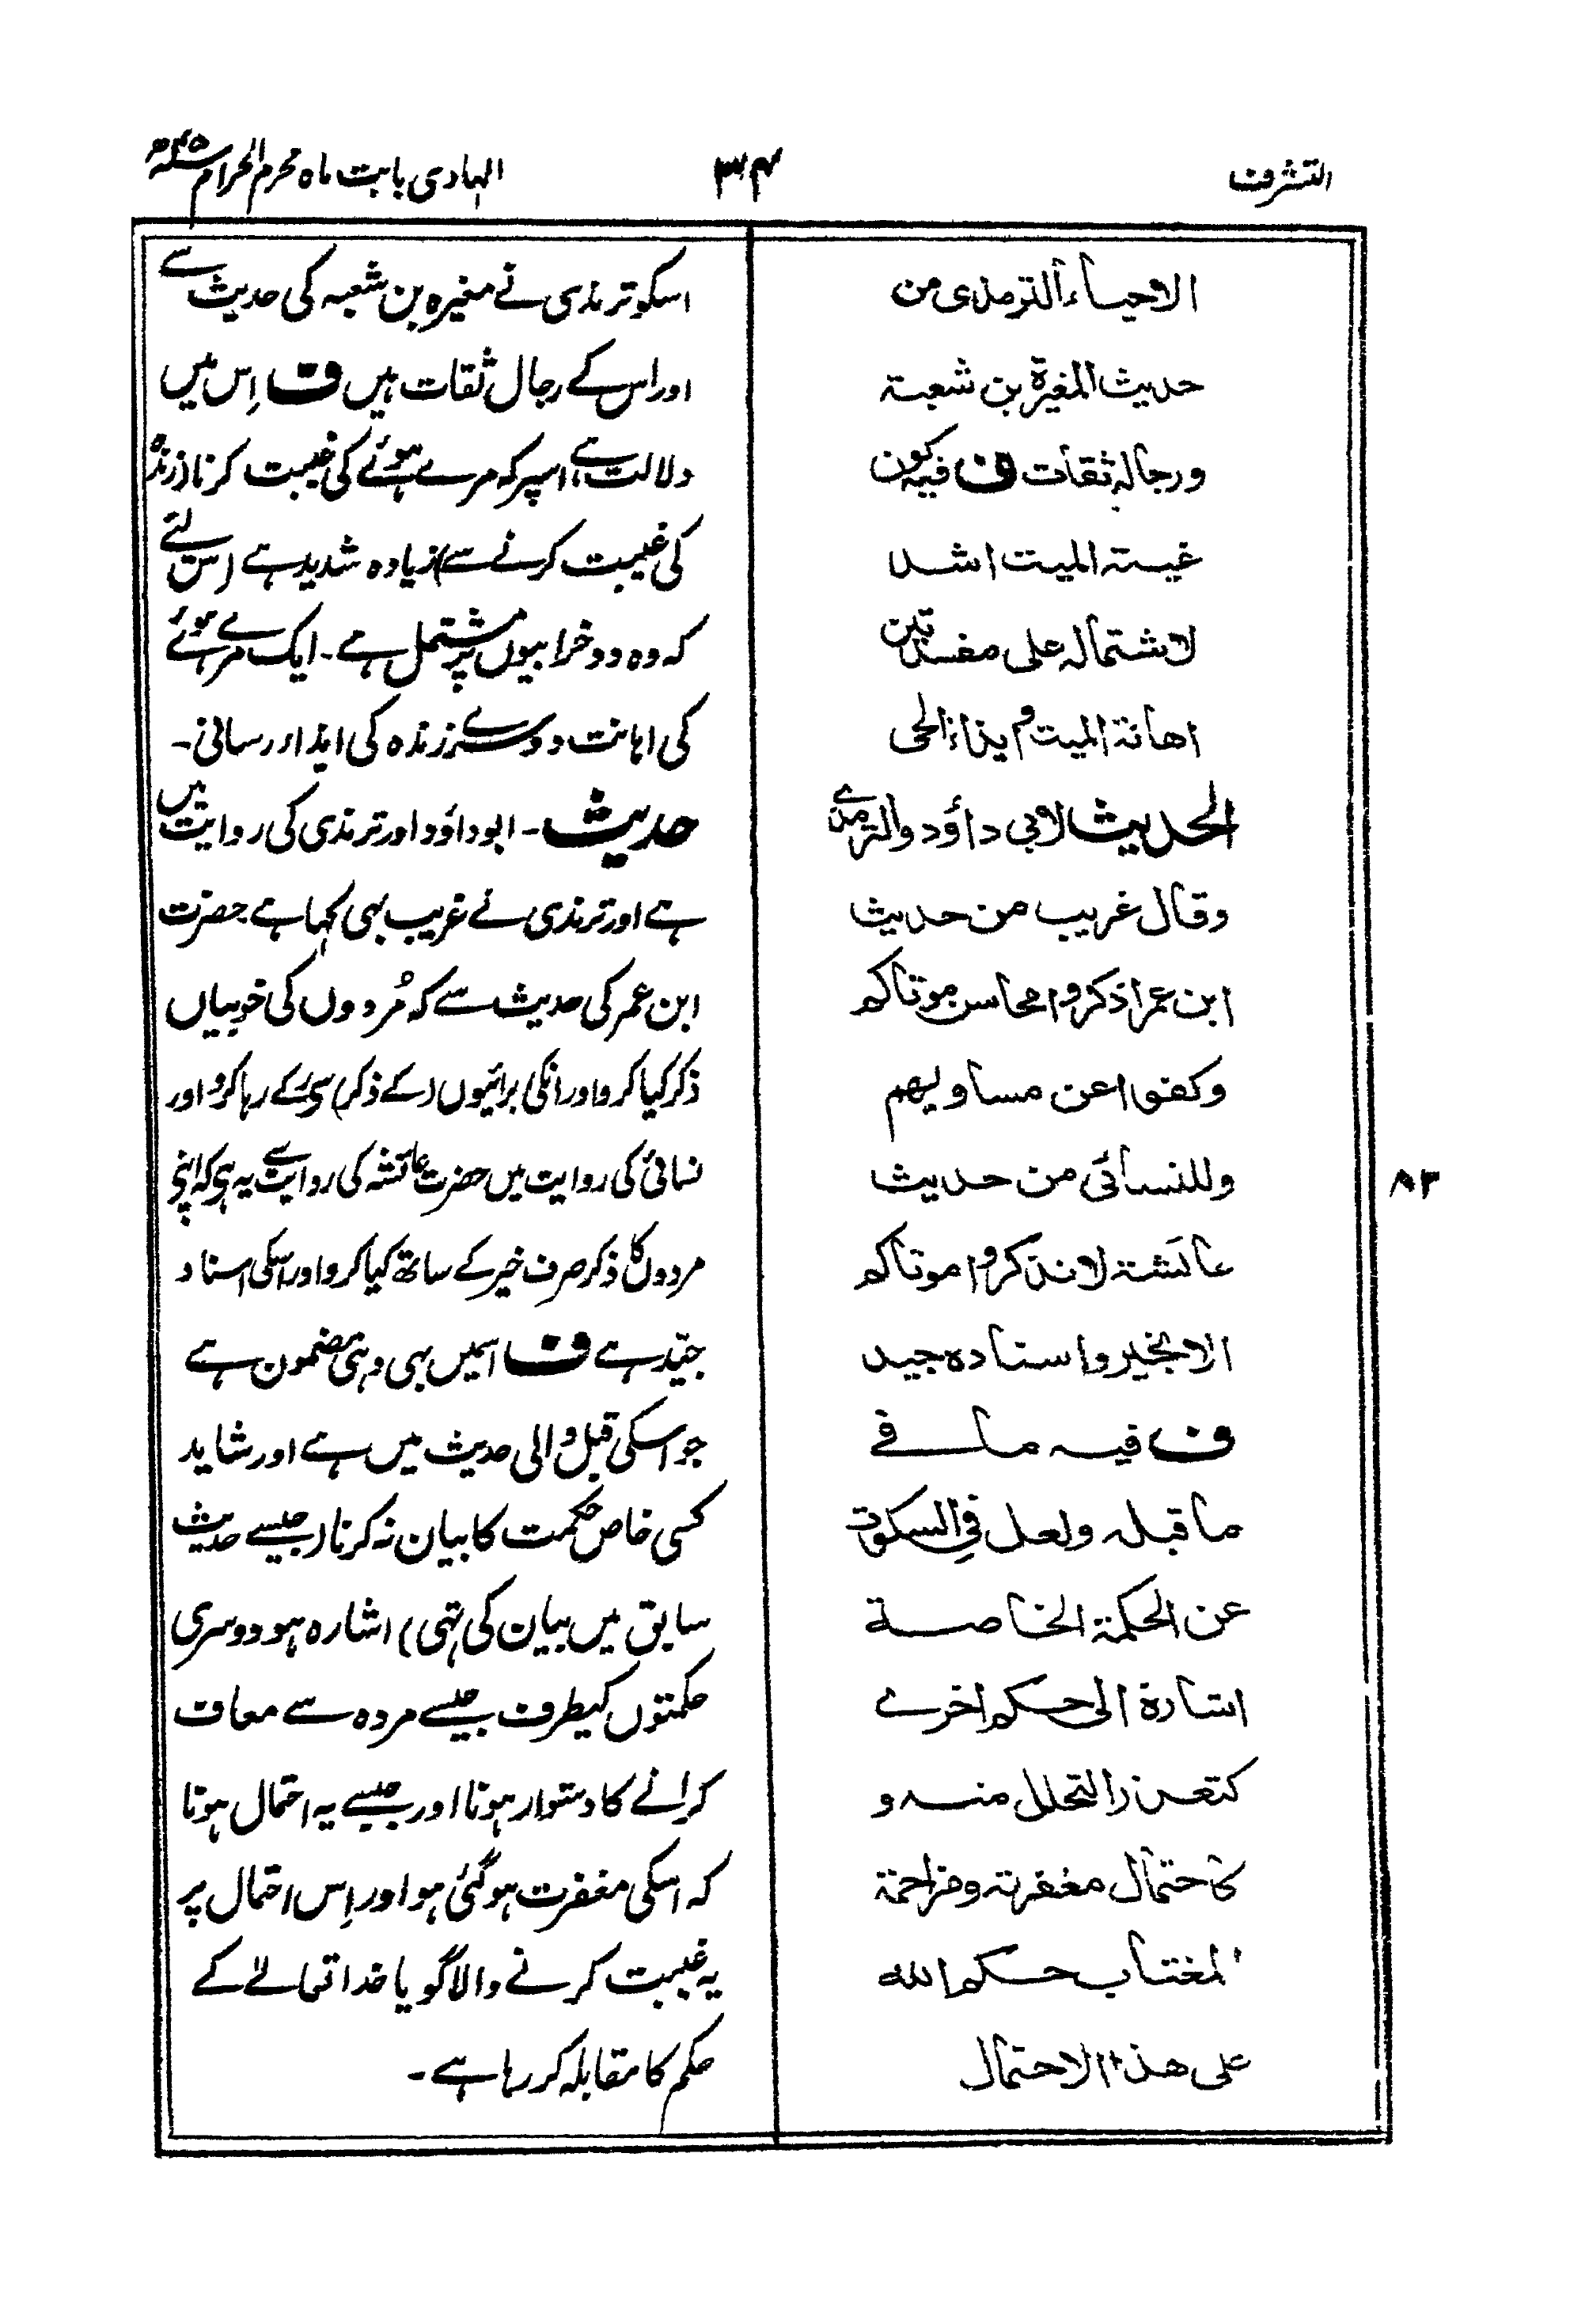 التشرف
۳۴
الہادی بابت ماہ محرم الحرام ۴۵ھ
الاحیاء الترمذی من
حدیث المغیرۃ بن شعبۃ
ورجالہ ثقات ف فیہ کون
غیبتہ المیت اشد
لاشتمالہ علی مفسدتین
اھانۃ المیت و ایذاء الحی
الحدیث لابی داؤد والترمذی
وقال غریب من حدیث
ابن عمر اذکروا محاسن موتاکم
وکفوا عن مساویہم
وللنسائی من حدیث
عائشۃ لا تذکروا موتاکم
الا بخیر واسنادہ جید
ف فیہ ما فے
ما قبلہ ولعل فی السکوت
عن الحکمۃ الخاصۃ
اشارۃ الی حکم اخرے
کتعذر التحلل منہ و
کاحتمال مغفرتہ ومزاحمۃ
المغتاب حکم اللہ
علی ھذا الاحتمال
۸۳
اسکو ترمذی نے مغیرہ بن شعبہ کی حدیث سے
اور اس کے رجال ثقات ہیں ف اِس میں
دلالت ہے اسپر کہ مرے ہوئے کی غیبت کرنا (زندہ
کی غیبت کرنے سے) زیادہ شدید ہے (اس لئے
کہ وہ دو خرابیوں پر مشتمل ہے۔ ایک مرے ہوئے
کی اہانت دوسرے زندہ کی ایذاء رسانی۔
حدیث۔ ابوداؤد اور ترمذی کی روایت میں
ہے اور ترمذی نے غریب بہی کہا ہے حضرت
ابن عمر کی حدیث سے کہ مُردوں کی خوبیاں
ذکر کیا کرو اور انکی برائیوں (کے ذکر) سی رکے رہا کرو اور
نسائی کی روایت میں حضرت عائشہ کی روایت سے یہ ہی کہ اپنی
مردوں کا ذکر صرف خیر کے ساتھ کیا کرو اور اسکی اسناد
جیّد ہے ف اسمیں بہی وہی مضمون ہے
جو اسکی قبل والی حدیث میں ہے اور شاید
کسی خاص حکمت کا بیان نہ کرنا (جیسے حدیث
سابق میں بیان کی تہی) اشارہ ہو دوسری
حکمتوں کیطرف جیسے مردہ سے معاف
کرانے کا دشوار ہونا اور جیسے یہ احتمال ہونا
کہ اسکی مغفرت ہو گئی ہو اور اِس احتمال پر
یہ غیبت کرنے والا گویا خدا تعالےٰ کے
حکم کا مقابلہ کر رہا ہے۔